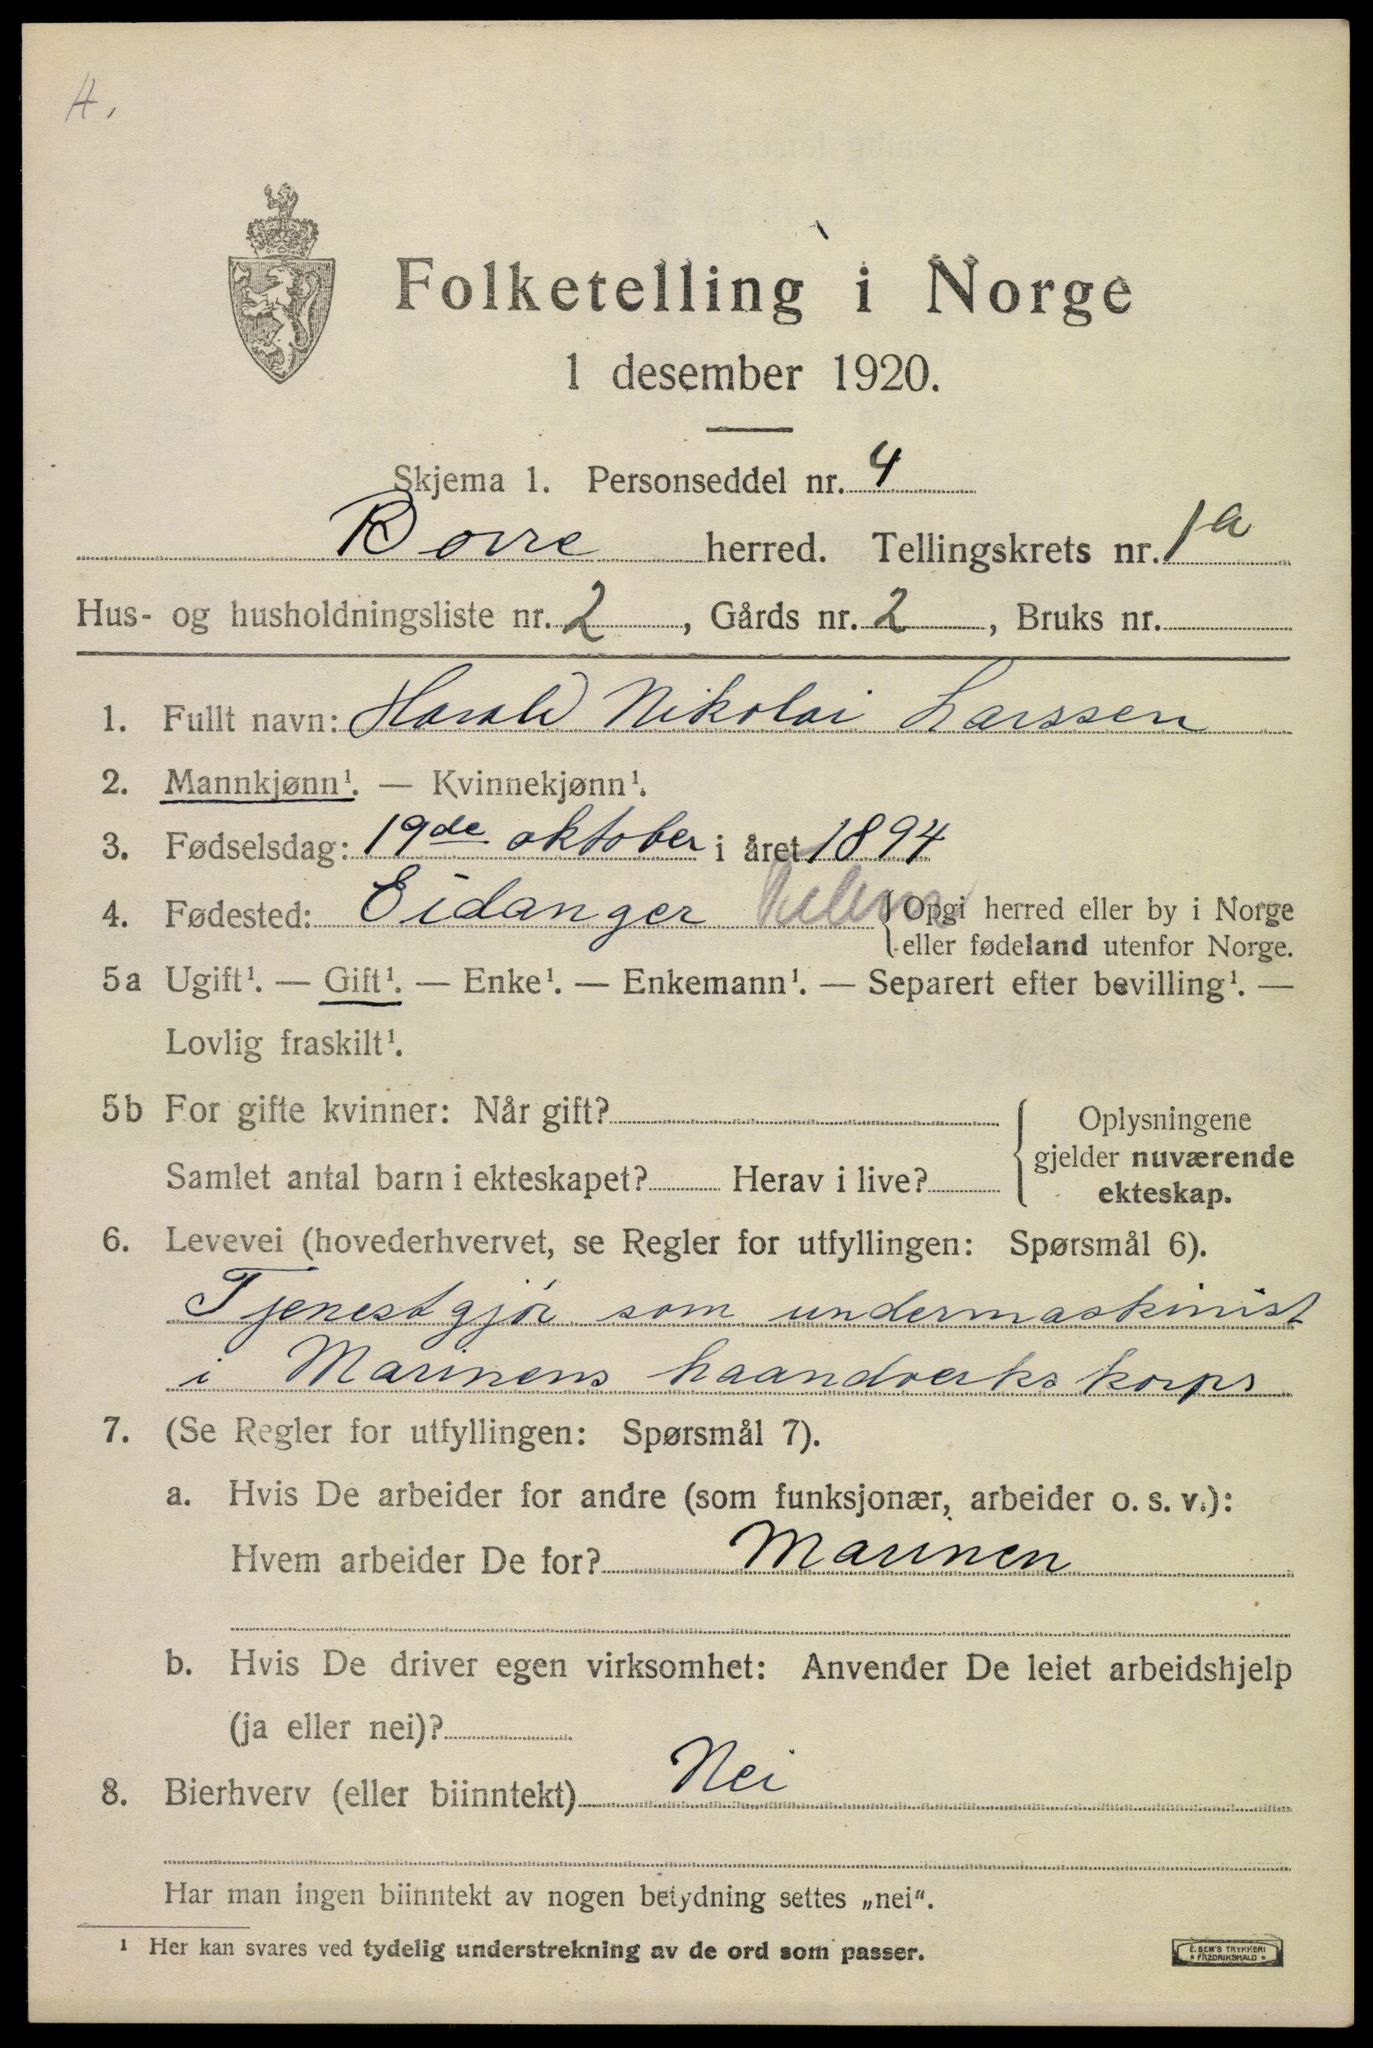 H.
Folketelling i Norge
1 desember 1920.
Skjema 1. Personseddel nr. 4
Borre herred. Tellingskrets nr. 1a
Hus- og husholdningsliste nr. 2, Gårds nr. 2, Bruks nr.
1. Fullt navn: Harald Nikolai Larssen
2. Mannkjønn¹. — Kvinnekjønn¹.
3. Fødselsdag: 19de oktober i året 1894
4. Fødested: Eidanger { Opgi herred eller by i Norge
eller fødeland utenfor Norge.
5a Ugift¹. — Gift¹. — Enke¹. — Enkemann¹. — Separert efter bevilling¹. —
Lovlig fraskilt¹.
5b For gifte kvinner: Når gift? { Oplysningene
gjelder nuværende
Samlet antal barn i ekteskapet? Herav i live? ekteskap.
6. Levevei (hovederhvervet, se Regler for utfyllingen: Spørsmål 6).
Tjenestgjör som undermaskinist
i Marinens haandverkskorps
7. (Se Regler for utfyllingen: Spørsmål 7).
a. Hvis De arbeider for andre (som funksjonær, arbeider o. s. v.):
Hvem arbeider De for? Marinen
b. Hvis De driver egen virksomhet: Anvender De leiet arbeidshjelp
(ja eller nei)?
8. Bierhverv (eller biinntekt) Nei
Har man ingen biinntekt av nogen betydning settes „nei“.
¹ Her kan svares ved tydelig understrekning av de ord som passer.
E. SEM'S TRYKKERI
FREDRIKSHALD